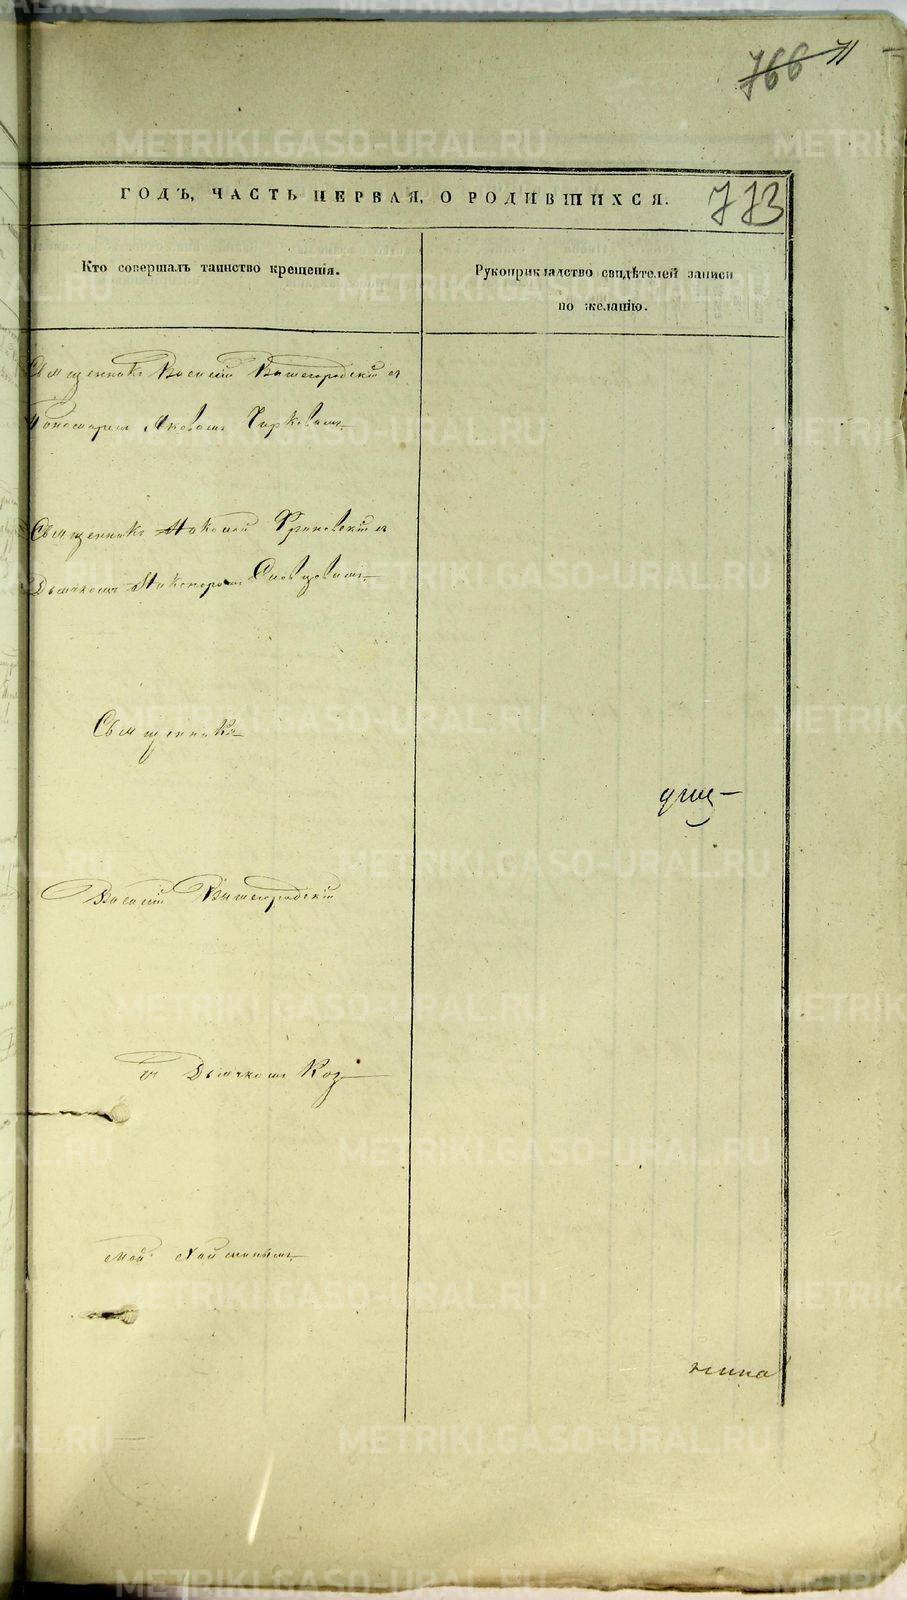 766 71
ГОДЪ, ЧАСТЬ ПЕРВАЯ, О РОДИВШИХСЯ.
773
Кто совершалъ таинство крещенія.
Рукоприкладство свидѣтелей записи
по желанію.
Священникъ Василій Вышегородскій съ
Пономаремъ Яковомъ Чирковымъ
Священникъ Николай съ
Дьячкомъ Никаноромъ Словцовымъ
Священникъ
Василій Вышегородскій
съ Дьячкомъ Коз
мой
METRIKI.GASO-URAL.RU